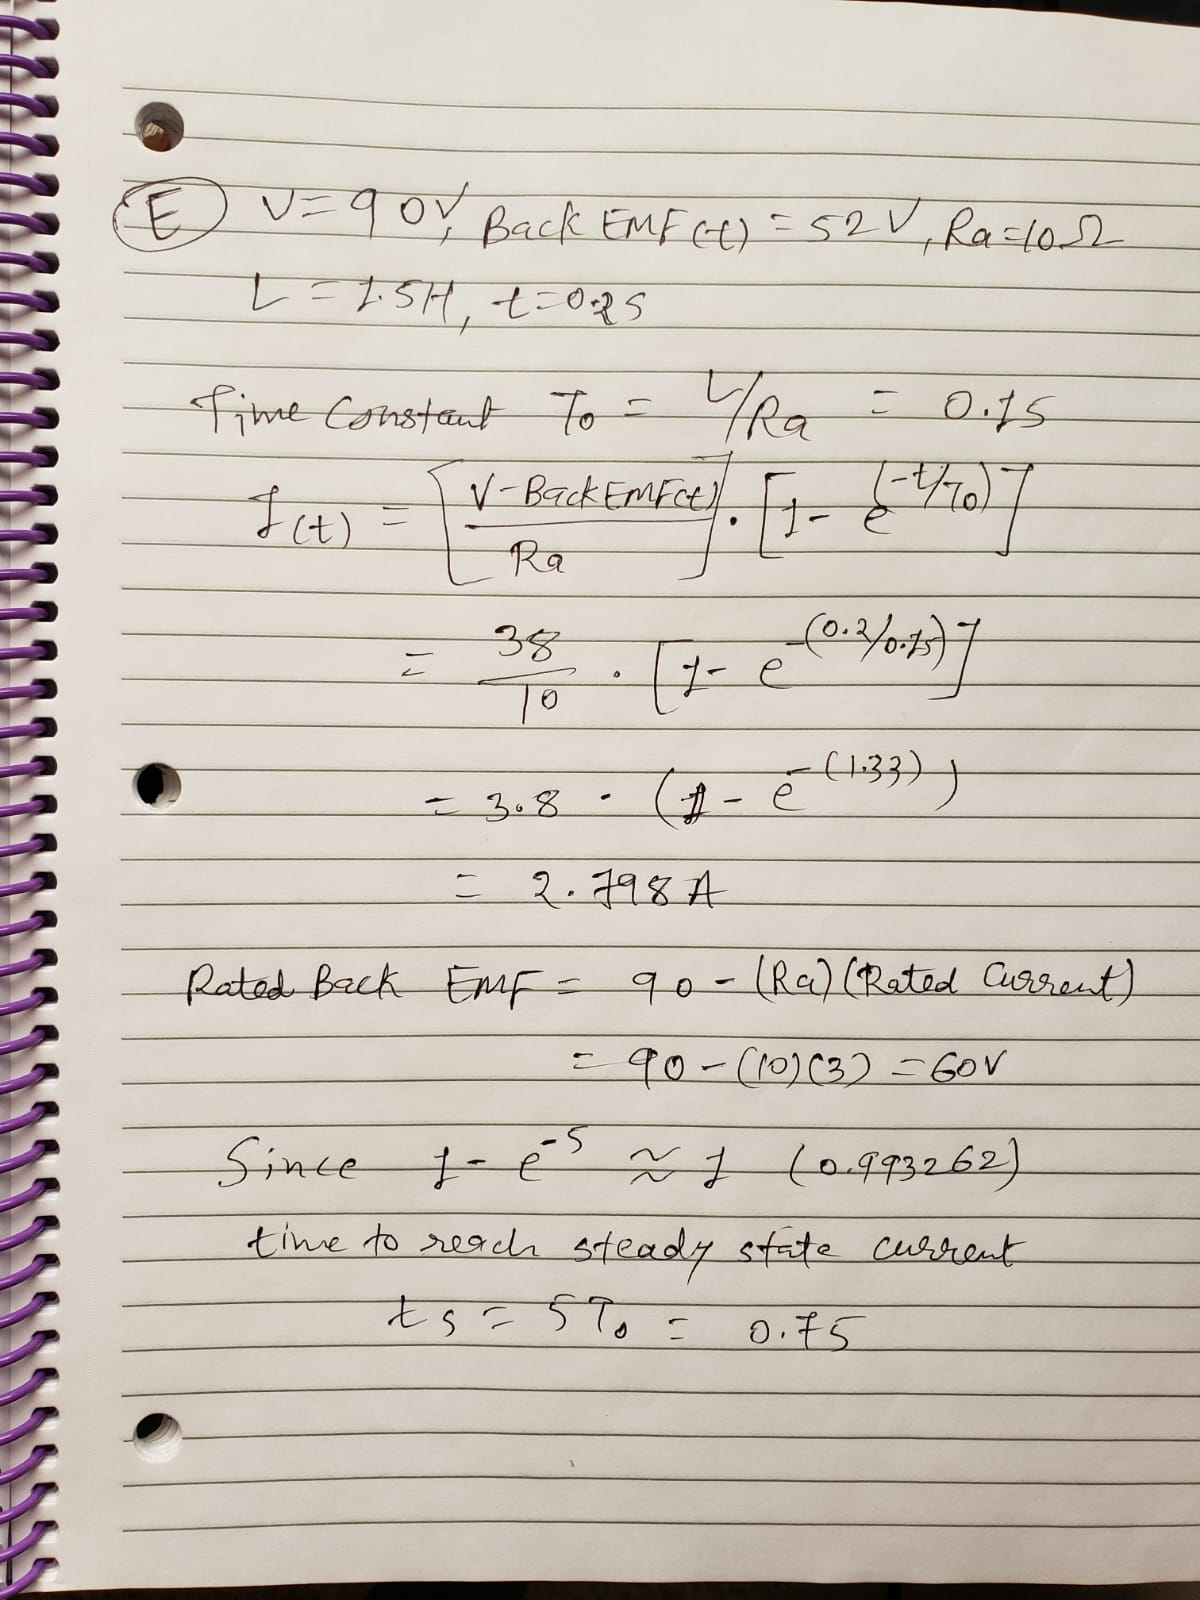 E V=90V, Back EMF(t) = 52V, Ra=10Ω
L = 1.5H, t=0.2s
Time Constant T₀ = L/Ra = 0.15
I(t) = [V-BackEMF(t)/Ra] . [1- e^(-t/T₀)]
= 38/10 . [1- e^-(0.2/0.15)]
= 3.8 . (1- e^-(1.33))
= 2.798A
Rated Back EMF = 90-(Ra)(Rated Current)
= 90-(10)(3) = 60V
Since 1- e^-5 ≈ 1 (0.993262)
time to reach steady state current
ts = 5T₀ = 0.75